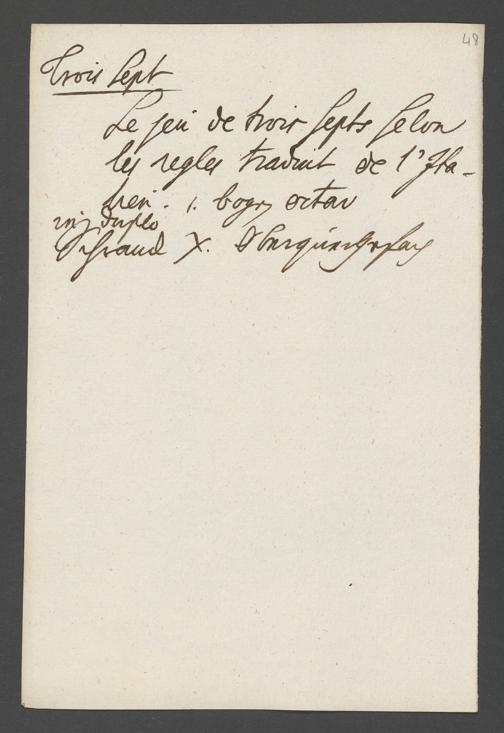 48
Trois Sept
Le jeu de trois Septs selon
les regles traduit de l'Ita-
lien. 1. bogn octav
in duplo
Schrank X.